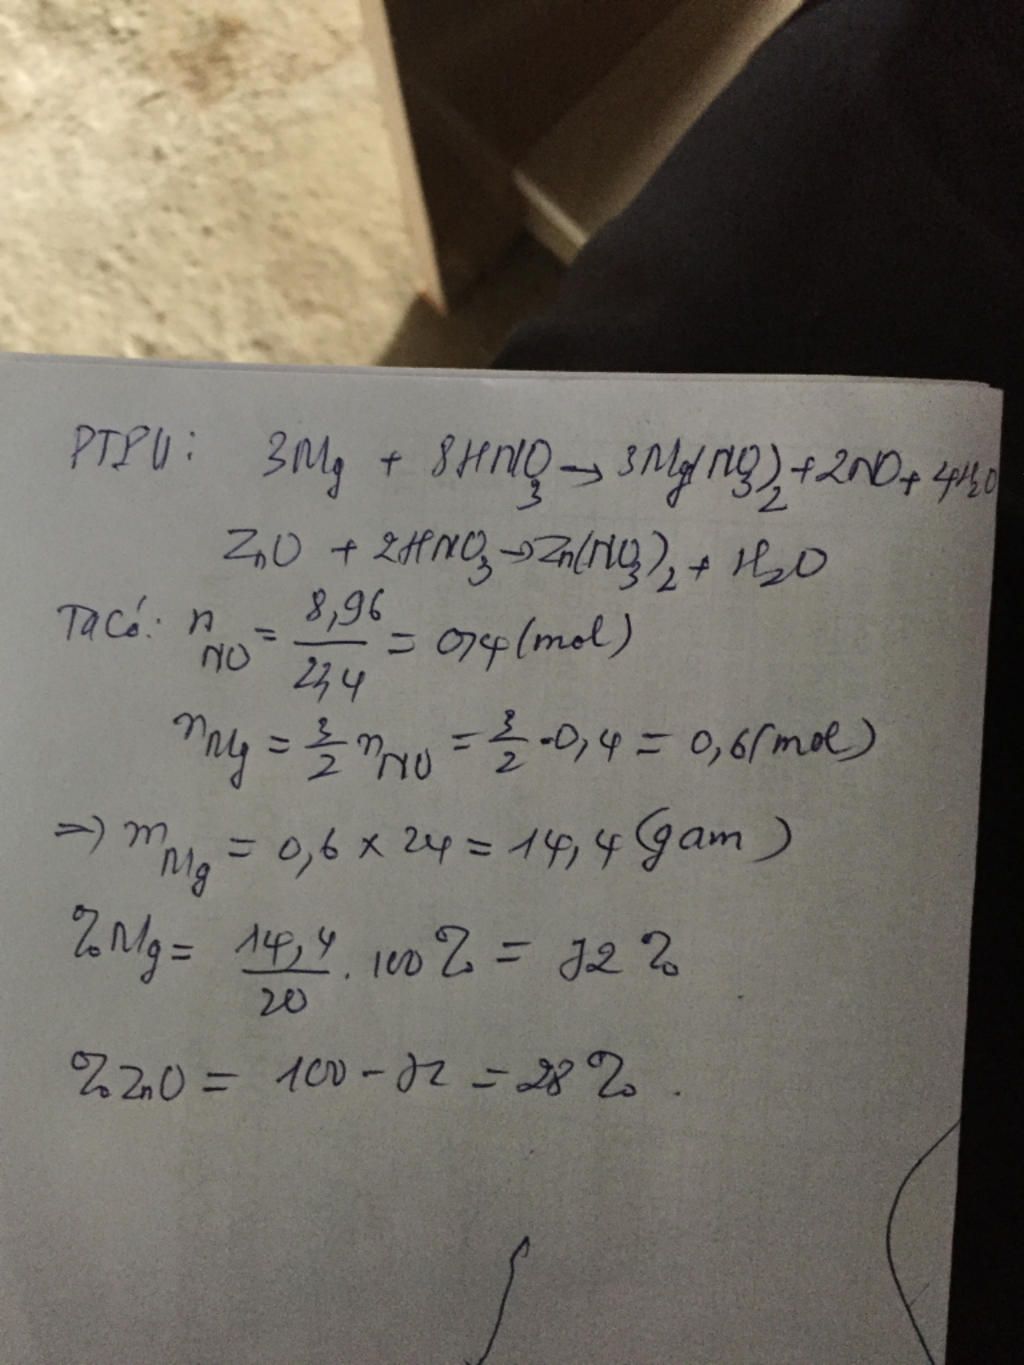 PTPU: 3Mg + 8HNO3 → 3Mg(NO3)2 + 2NO + 4H2O
ZnO + 2HNO3 → Zn(NO3)2 + H2O
Ta có: nNO = 8,96/22,4 = 0,4 (mol)
nMg = 3/2 nNO = 3/2 · 0,4 = 0,6 (mol)
=> mMg = 0,6 x 24 = 14,4 (gam)
%Mg = 14,4/20 . 100% = 72%
%ZnO = 100 - 72 = 28%.